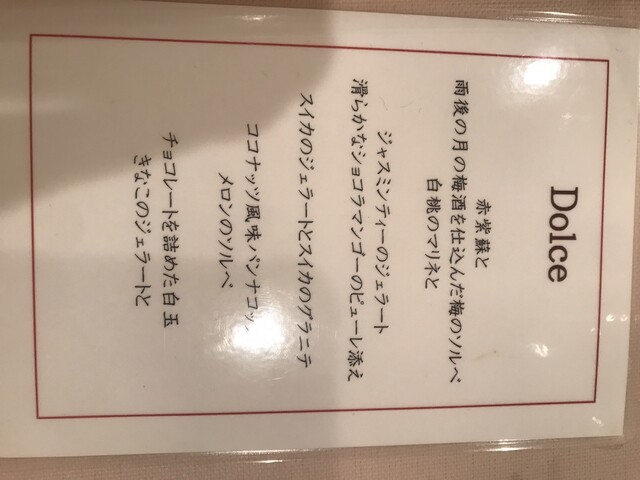 Dolce
赤紫蘇と
雨後の月の梅酒を仕込んだ梅のソルベ
白桃のマリネと
ジャスミンティーのジェラート
滑らかなショコラマンゴーのピューレ添え
スイカのジェラートとスイカのグラニテ
ココナッツ風味パンナコッ
メロンのソルベ
チョコレートを詰めた白玉
きなこのジェラートと